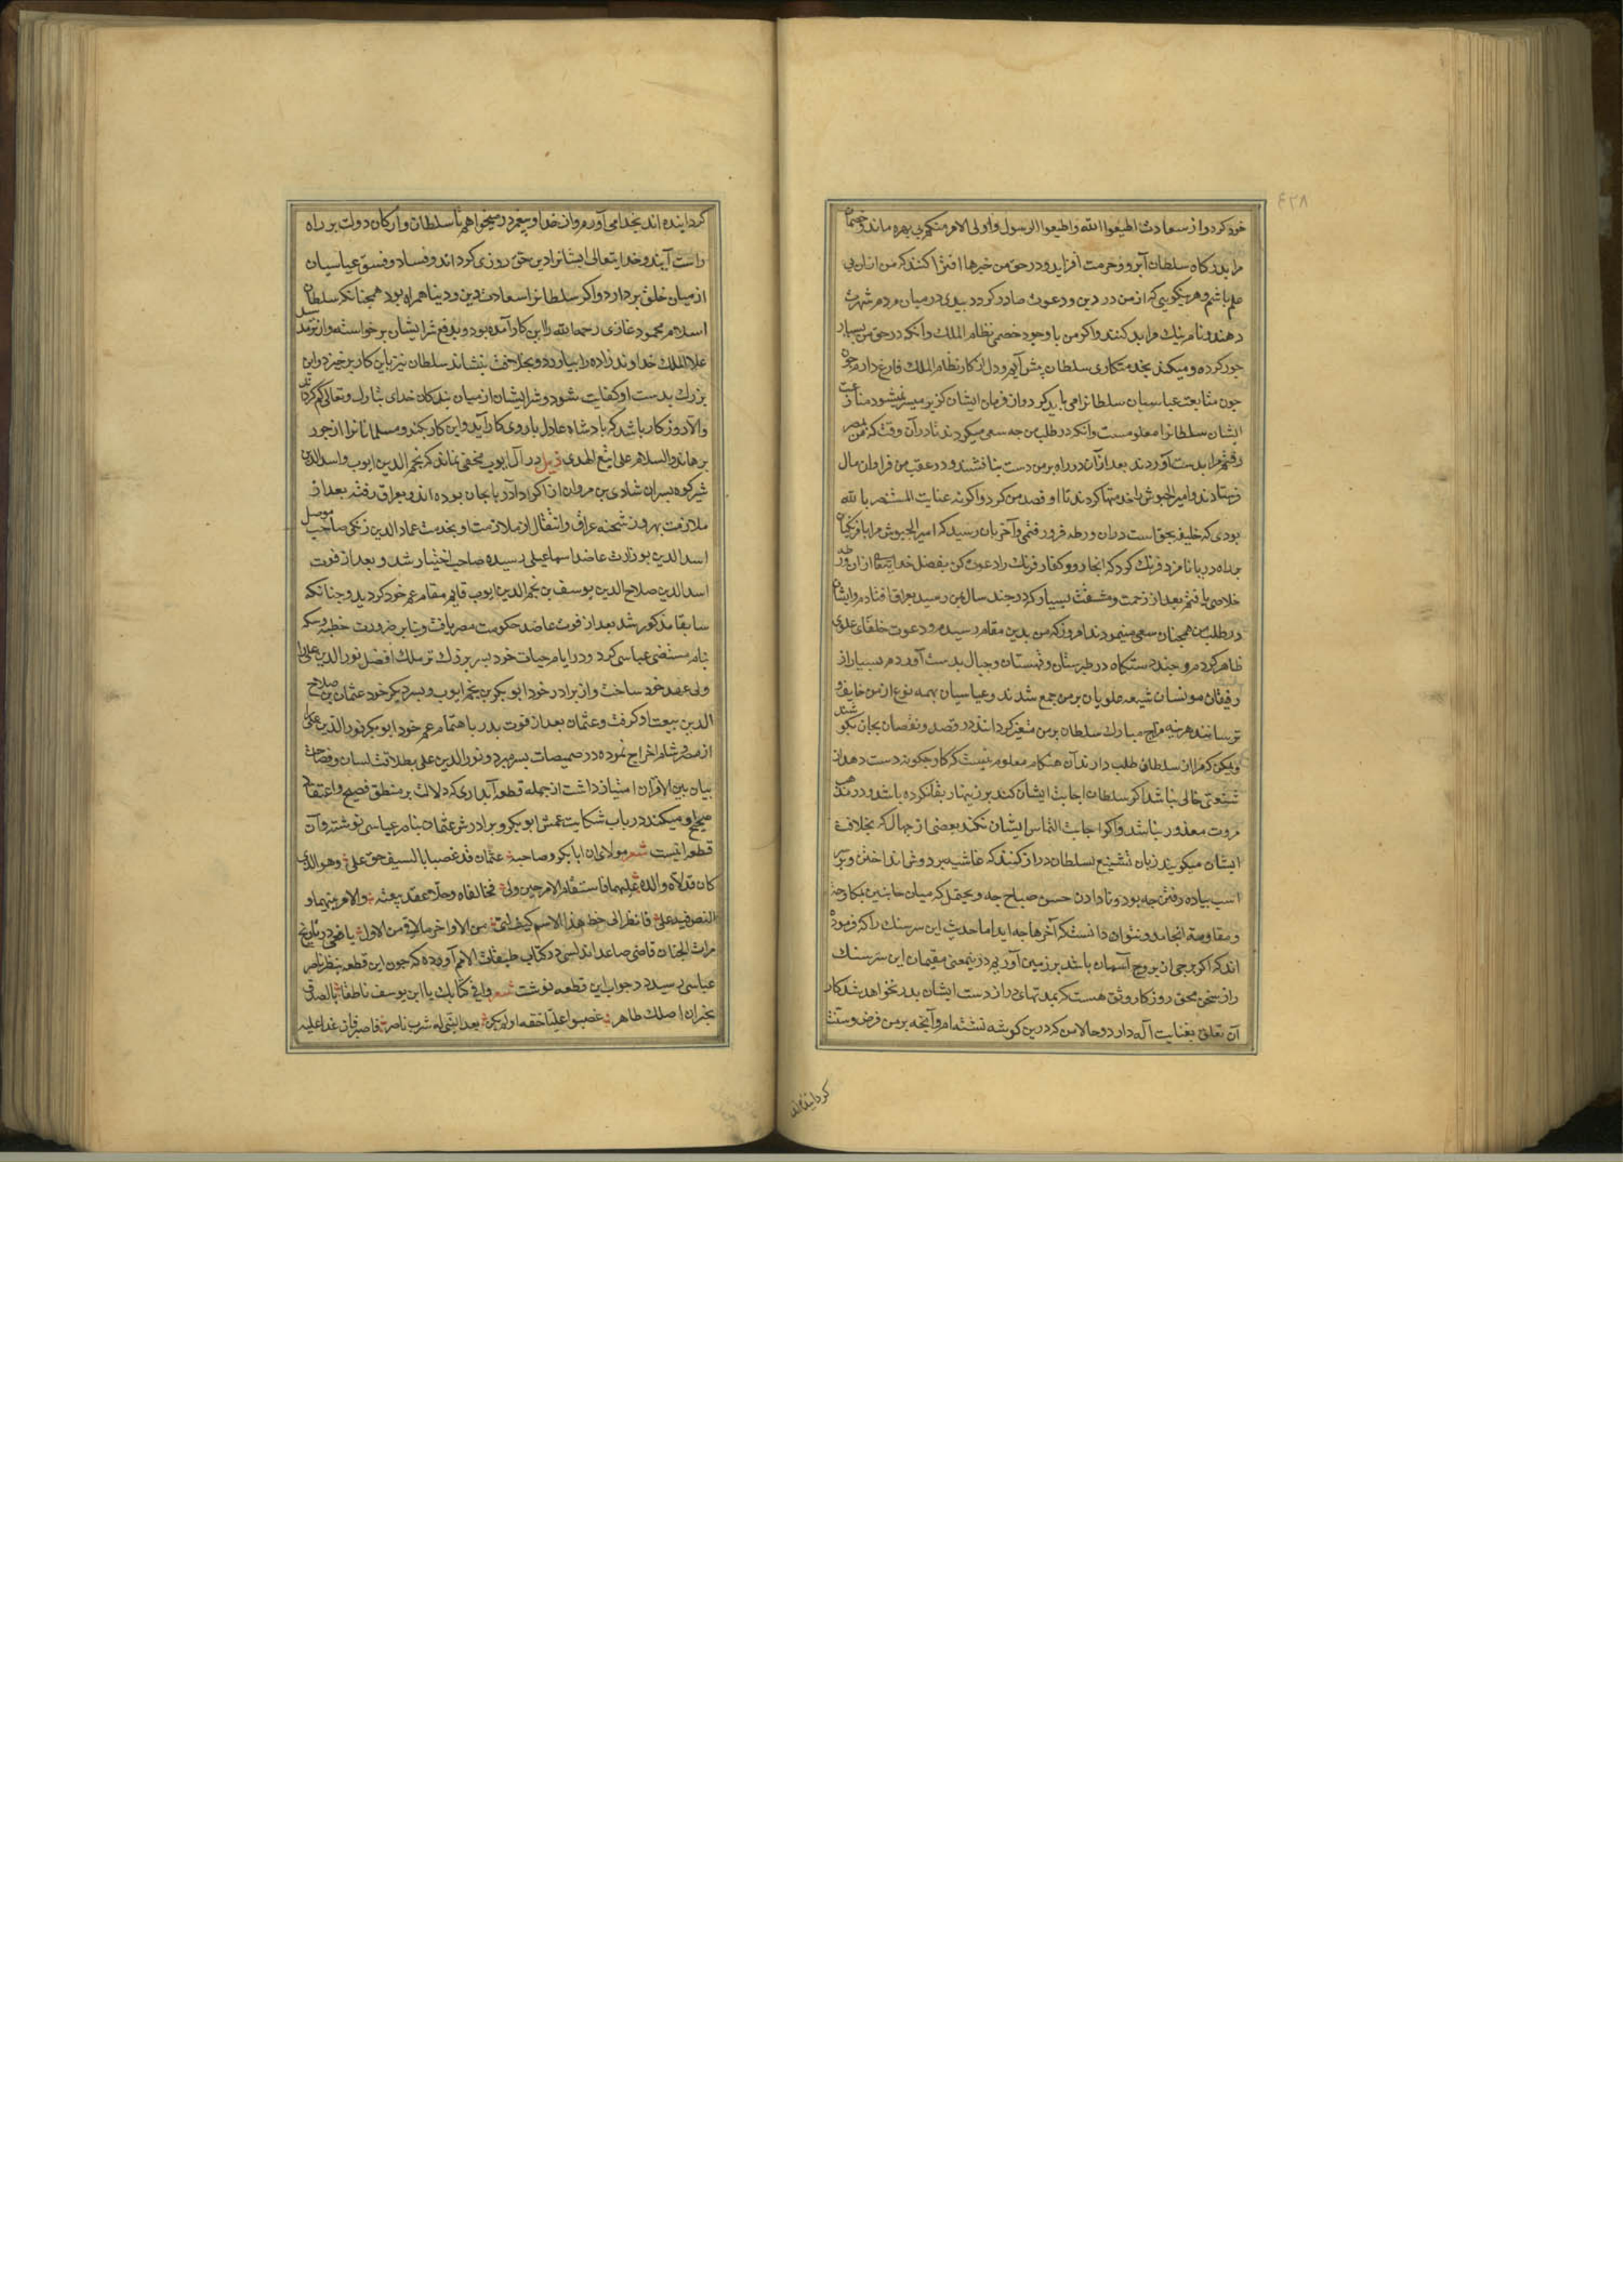 ٤٣٨
خود کرد و از سعادت اطیعوا الله و اطیعوا الرسول و اولی الامر منکم بی بهره ماند و خصمان
مرا بدرکاه سلطان آبرو و حرمت افزاید و در حق من خبرها افترا کنند که من ازان بی
علم باشم و هر نیکویی که از من در دین و دعوت صادر کردد ببدی در میان مردم شهرت
دهند و نام نیک مرا بد کنند و اکر من با وجود خصمی نظام الملک و آنکه در حق من بسیار
جور کرده و میکند بخدمتکاری سلطان پیش آیم و دل از کار نظام الملک فارغ دارم
چون متابعت عباسیان سلطانرا می باید کرد و از فرمان ایشان کزیر میسر نمیشود
ایشان سلطانرا معلومست و آنکه در طلب من چه سعی میکردند تا در آن وقت که بمصر
رفتم مرا بدست آوردند بعد از آن در راه بر من دست نیافتند و در عقب من فراوان مال
فرستادند و امیر الجیوش را خدمتها کردند تا او قصد من کرد و اکر نه عنایت المستنصر بالله
بودی که خلیفه بحق است دران ورطه فرو رفتمی و آخر بان رسید که امیر الجیوش مرا با فرنکیان
براه دریا نامزد فرنک کرد که انجا رو و کفار فرنک را دعوت کن بفضل خدایتعالی ازان ورطه
خلاصی یافتم بعد از زحمت و مشقت بسیار که در چند سال بمن رسید بعراق افتادم و ایشان
در طلب من همچنان سعی مینمودند امروز که من بدین مقام رسیدم و دعوت خلفای علوی
ظاهر کردم و چند دستکاه در طبرستان و قهستان و جبال بدست آوردم بسیار از
رفیقان مونسان شیعه علویان بر من جمع شدند و عباسیان بهمه نوع از من خایف و
ترسانند هرینه مزاج مبارک سلطان بر من متغیر کردانند در قصد و نقصان بجان بکوشند
ویکن که مرا از سلطان طلب دارند آن هنکام معلوم نیست که کار چکونه دست دهد از
شنعتی خالی نباشد اکر سلطان اجابت ایشان کند
مروت معذور نباشد و اکر اجابت التماس ایشان نکند بعضی از جهال که بخلافت
ایشان میکویند زبان تشنیع بسلطان دراز کنند که غاشیه بر دوش انداختن و در
اسب پیاده رفتن چه بود و نا دادن حسن صباح چه و یحتمل که میان جانبین بمکاوحه
و مقاومه انجامد و نتوان دانست که آخرها چه آید اما حدیث این سر سنک را که فرموده
اند که اکر برجی از بروج آسمان باشد بر زمین آوریم درینمعنی مقیمان این سر سنک
را از سخن محق روزکار وثق هست که بمدتهای دراز از دست ایشان بدر نخواهد شد کار
آن تعلق بعنایت آله دارد و حالا من که درین کوشه نشسته ام و آنچه بر من فرض و سنت
کردانیده اند
کردانیده اند بجدا می آورم و از خدا و پیغمبر در میخواهم تا سلطان و ارکان دولت بر راه
راست آیند و خدایتعالی ایشانرا دین حق روزی کرداند و فساد و فسق عباسیان
از میان خلق بر دارد و اکر سلطانرا سعادت دین و دنیا همراه بود همچنانکه سلطان
اسلام محمود غازی رحمه الله را این کار آمده بود و بدفع شر ایشان برخواسته و از ترمد
علاء الملک خداوندزاده را بیاورد و بخلافت بنشاند سلطان نیز باین کار برخیزد و این
بزرک بدست او کفایت شود و شر ایشان از میان بندکان خدای تبارک و تعالی کم کرداند
و الا روزکار باشد که پادشاه عادل با روی کار آید و این کار بکند و مسلمانانرا از جور
برهاند و السلام علی اتبع الهدی ذیل در آل ایوب مخفی نماند که نجم الدین ایوب و اسد الدین
شیرکوه پسران شادی بن مروان از اکراد آذربایجان بوده اند و بعراق رفته بعد از
ملازمت بهروز شحنه عراق و انتقال از ملازمت او بخدمت عماد الدین زنکی صاحب موصل
اسد الدین بوزارت عاضد اسماعیلی رسیده صاحب اختیار شد و بعد از فوت
اسد الدین صلاح الدین یوسف بن نجم الدین ایوب قایم مقام عم خود کردید و چنانکه
سابقا مذکور شد بعد از فوت عاضد حکومت مصر یافت و بنابر ضرورت خطبه و سکه
بنام مستضی عباسی کرد و در ایام حیات خود پسر بزرکتر ملک افضل نور الدین علی را
ولی عهد خود ساخت و از برادر خود ابو بکر بن نجم ایوب و پسر دیکر خود عثمان بن صلاح
الدین بیعت او کرفت و عثمان بعد از فوت پدر باهتمام عم خود ابو بکر نور الدین علی را
از مصر و شام اخراج نموده در صمیصات بسر میبرد و نور الدین علی بطلاقت لسان و فصاحت
بیان بین الاقران امتیاز داشت از جمله قطعه آبداری که دلالت بر منطق فصیح و اعتقاد
صحیح او میکند در باب شکایت عمش ابو بکر و برادرش عثمان بنام عباسی نوشته و آن
قطعه اینست شعر مولای ان ابا بکر و صاحبه عثمان قد غصبا بالسیف حق علی وهو الذی
کان قد ولاه والده علیهما فاستقام الامر حین ولی فخالفاه وحلا عقد بیعته والامر بینهما و
النص فیه علی فانظر الی حظ هذا الاسم کیف لقی من الاواخر ما لاقی من الاول یافعی در تاریخ
مرات الجنان قاضی صاعد اندلسی در کتاب طبقات الامم آورده که چون این قطعه بنظر ناصر
عباسی رسید در جواب این قطعه نوشت شعر وافی کتابک یا ابن یوسف ناطقا بالصدق
یخبر ان اصلک طاهر غصبوا علیا حقه اذ لم یکن بعد النبی له بیثرب ناصر فاصبر فان غدا علیه